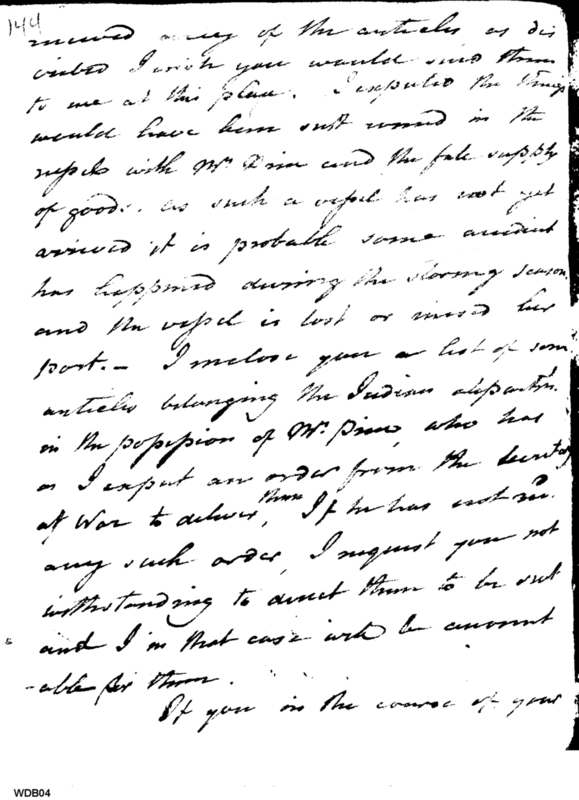 144
ceived any of the articles as dis
cribed I wish you would send them
to me at this place. I expected the things
would have been sent round in the
vessels with Mr Prim and the fale supply
of goods. as such a vessel has not yet
arrived it is probable some accident
has happened during the stormy season,
and the vessel is lost or missed her
port.— I inclose you a list of some
articles belonging the Indian departm.
in the possession of Mr. who has
as I expect an order from the Secretary
at War to deliver them, If he has not red.
any such order, I request you not
withstanding to direct them to be sent
and I in that case will be account
-able for them.
If you in the course of your
WDB04